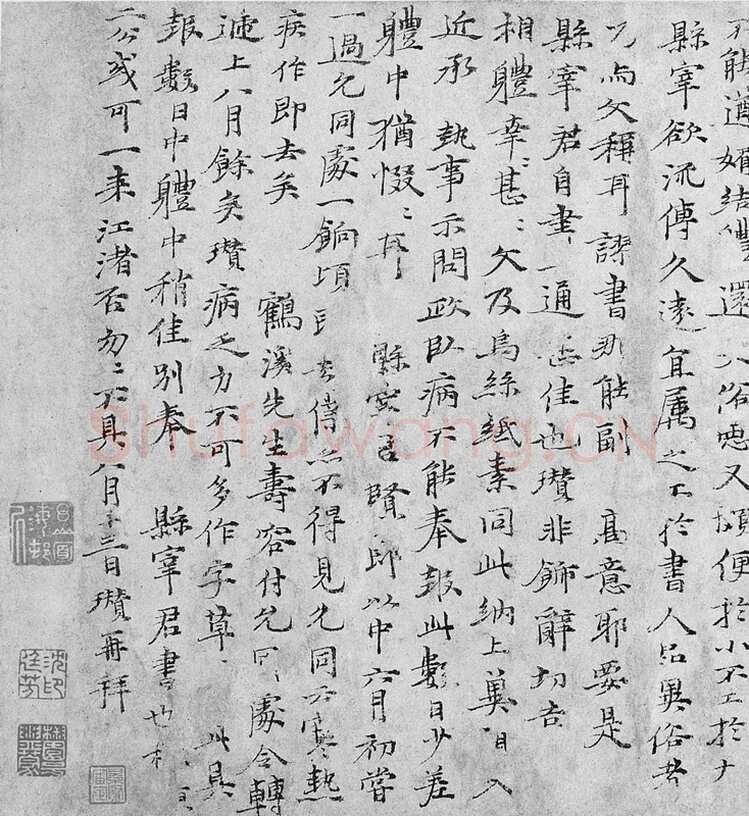 不能遒媚結體還入俗惡又頗便於小不工於大
縣宰欲流傳久遠宜属之工於書人品異俗者
乃為文稱耳謬書那能副 高意耶要是
縣宰君自書一通甚佳也瓚非飾辭切告
相體幸〻甚〻文及烏絲紙素同此納上冀目入
近承 執事示問政臥病不能奉報此數日少差
體中猶惙〻耳 縣宰君賢郎以中六月初嘗
一過允同處一餉頃 去 得見允同不寒熱
疾作即去矣 鶴溪先生壽容付允同處令轉
遞上八月餘矣瓚病乏力不可多作字草〻 具
報數日中體中稍佳別奉 縣宰君書也
二公或可一来江渚否勿〻不具八月十三日瓚再拜
Shufawang.CN